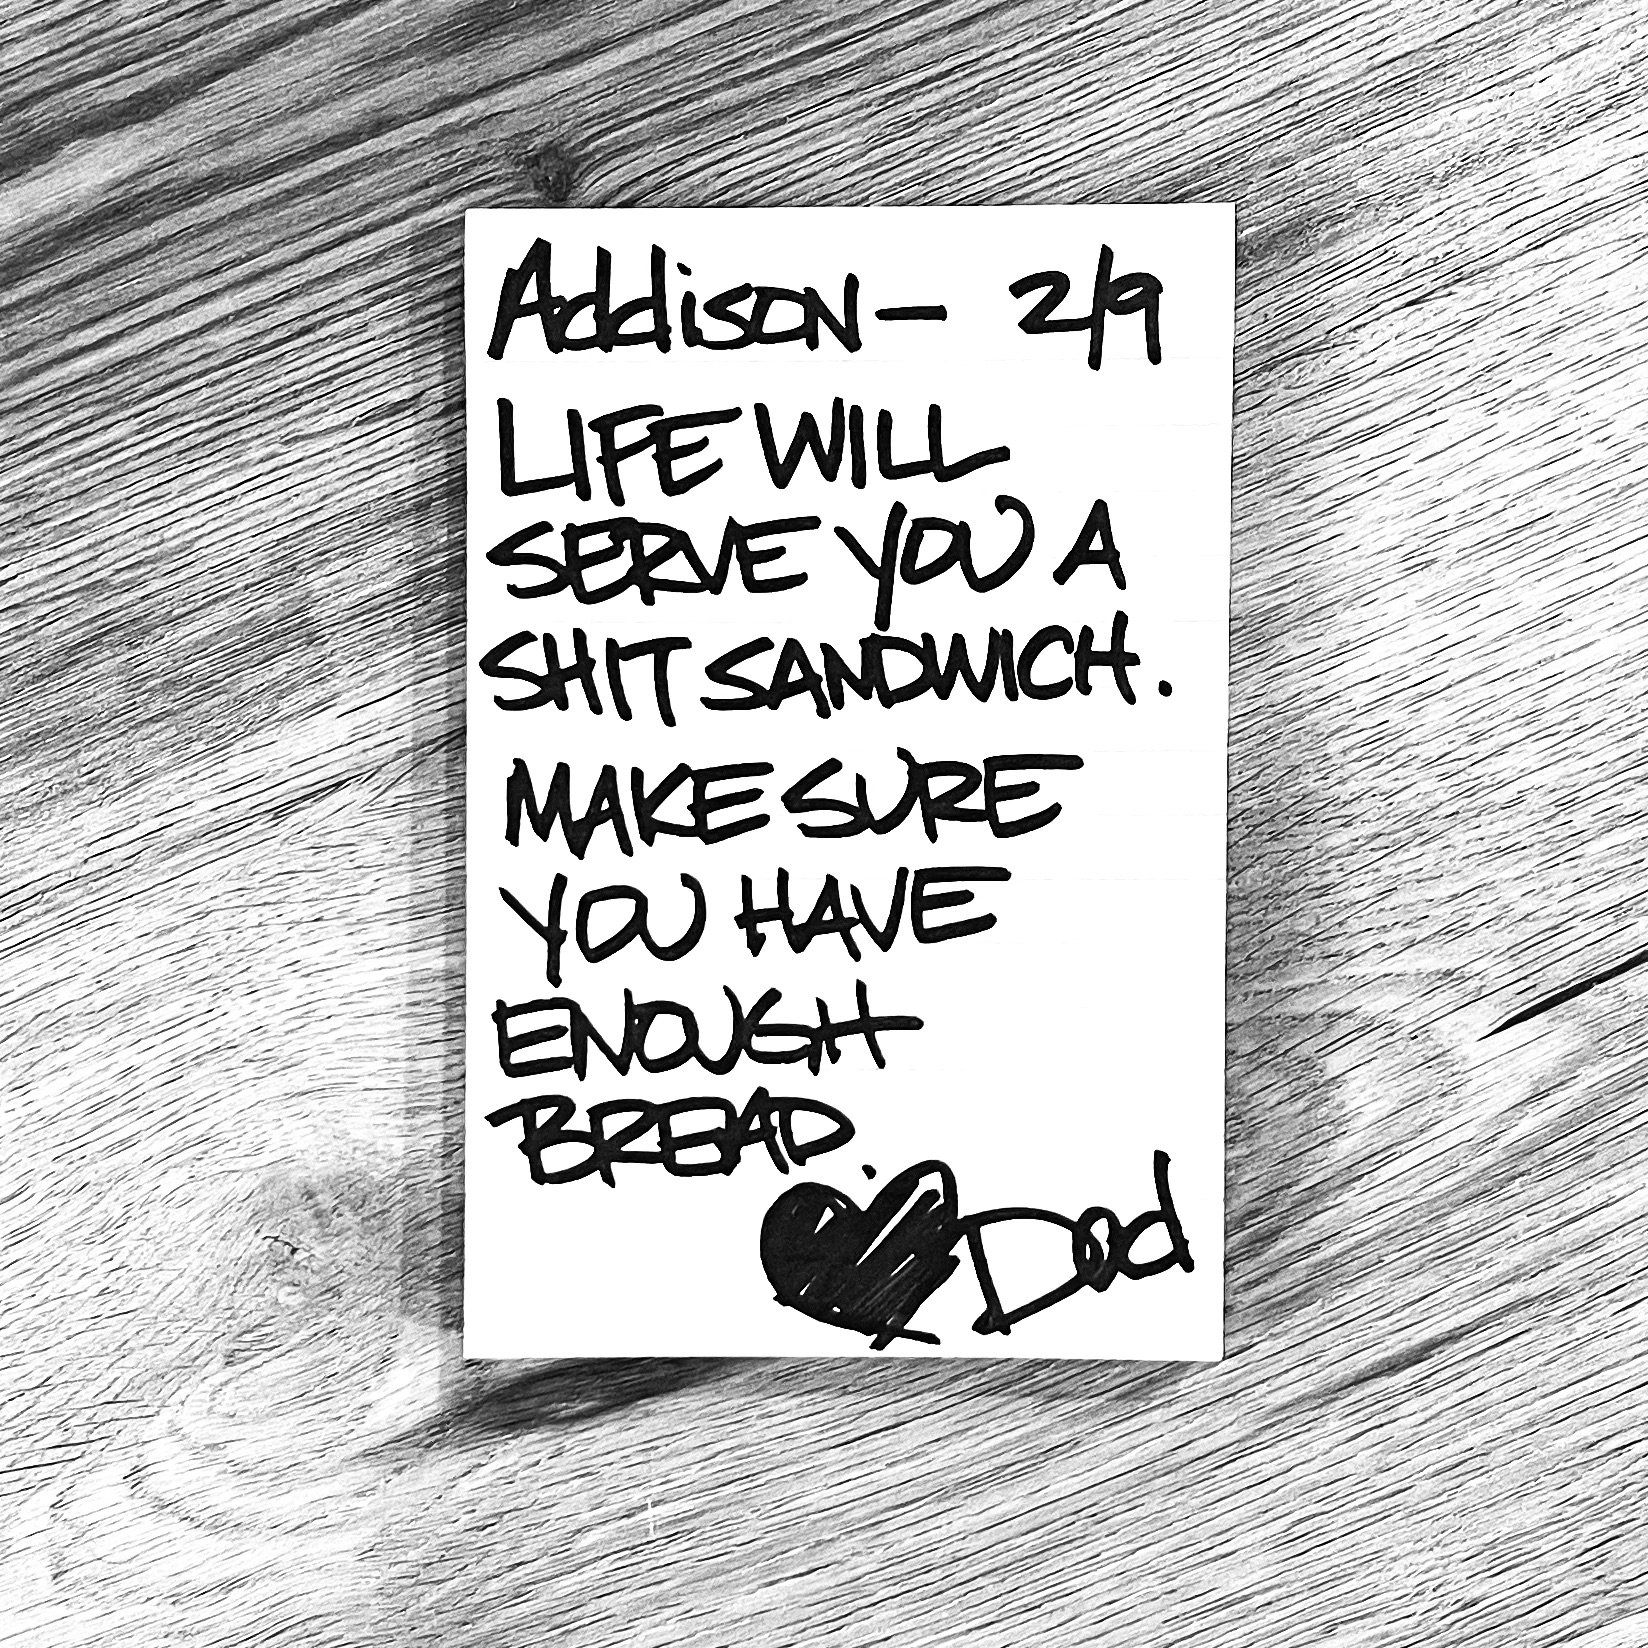 Addison — 2/9
LIFE WILL
SERVE YOU A
SHIT SANDWICH.
MAKE SURE
YOU HAVE
ENOUGH
BREAD.
Dad